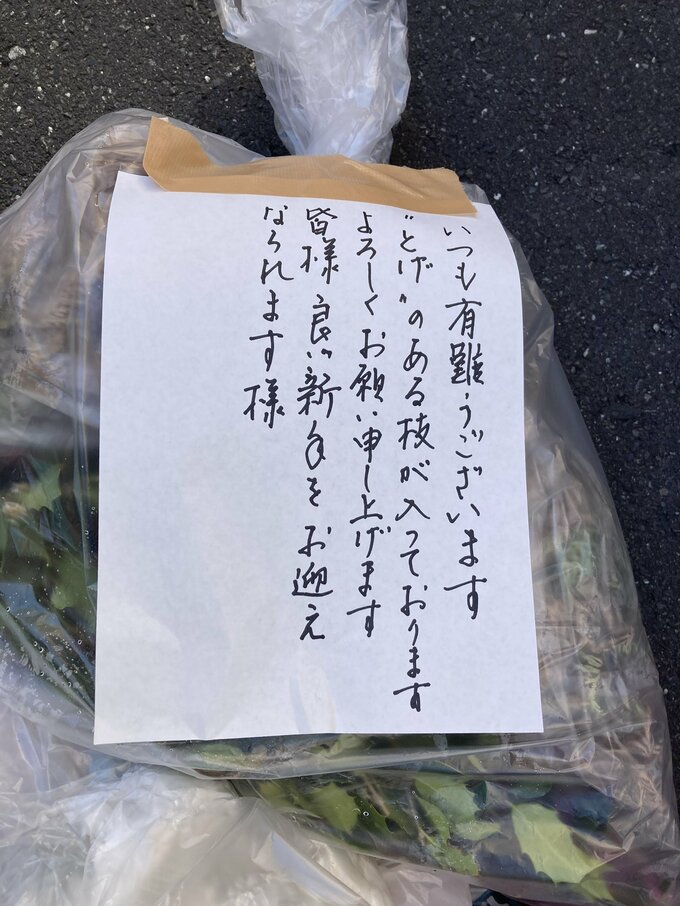 いつも有難うございます
"とげ"のある枝が入っております
よろしくお願い申し上げます
皆様良い新年をお迎え
なられます様